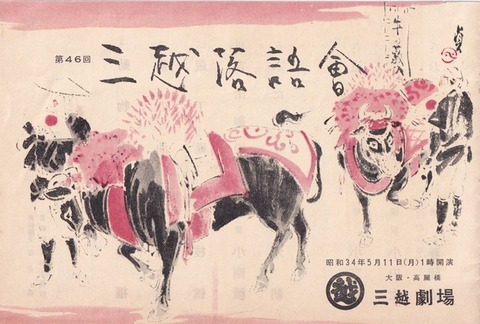 第46回
三越落語會
貞
昭和34年5月11日(月)1時開演
大阪・高麗橋
越
三越劇場